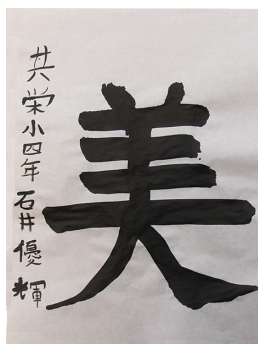 美
共栄小四年 石井優輝